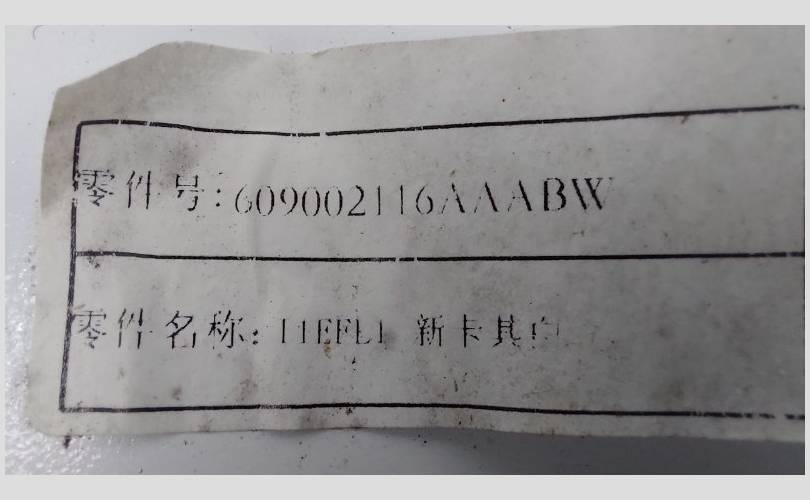 零件号:609002116AAABW
零件名称: 11EFL1 新卡其白